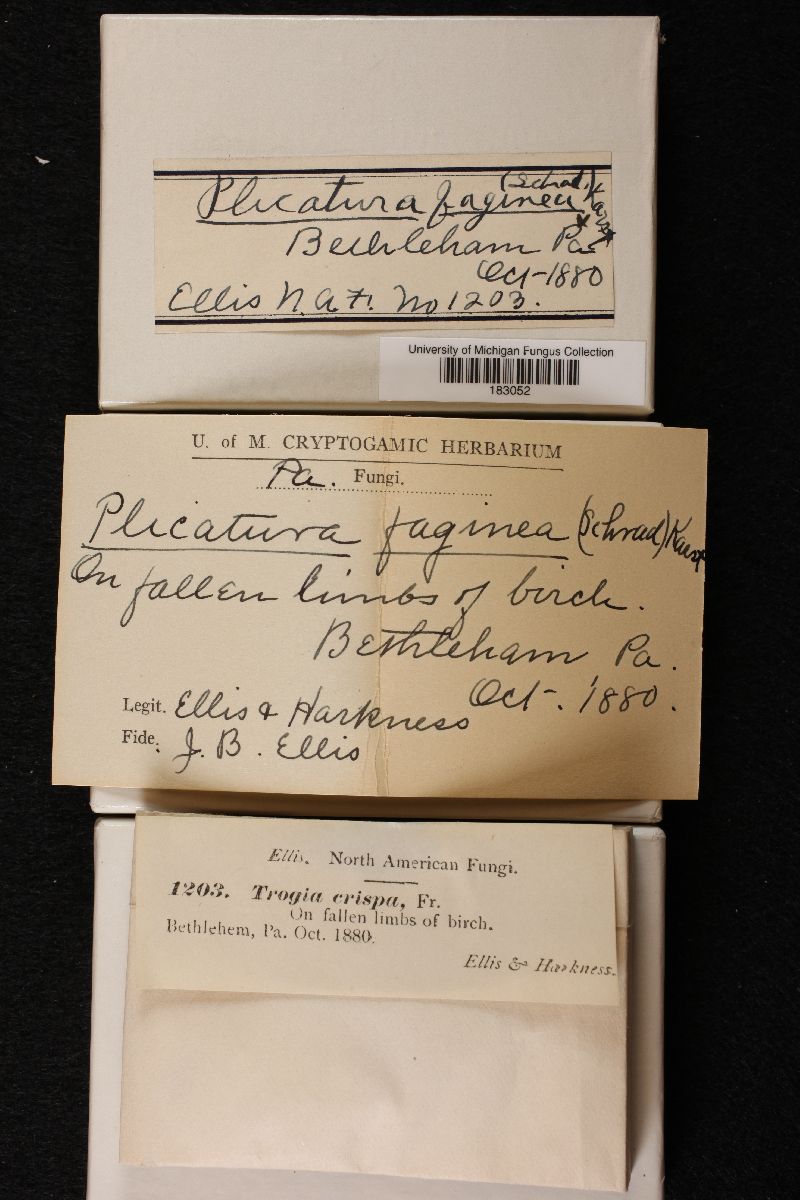 Plicatura faginea (Schrad.) Karst
Bethleham Pa.
Oct-1880
Ellis N.A.F. No 1203.
University of Michigan Fungus Collection
183052
U. of M. CRYPTOGAMIC HERBARIUM
Pa. Fungi.
Plicatura faginea (Schrad) Karst
On fallen limbs of birch.
Bethleham Pa.
Oct-. 1880.
Legit. Ellis & Harkness
Fide. J. B. Ellis
Ellis. North American Fungi.
1203. Trogia crispa, Fr.
On fallen limbs of birch.
Bethlehem, Pa. Oct. 1880.
Ellis & Harkness.